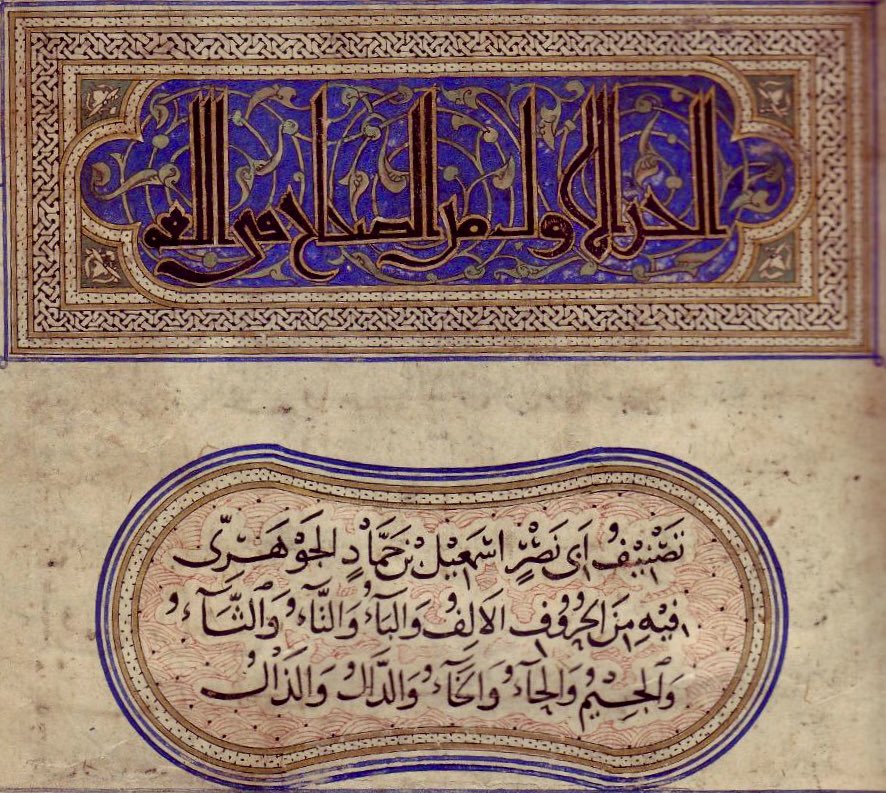 الجزء الاول من الصحاح في اللغة
تَصْنِيفُ أَبِي نَصْرٍ اسْمَعِيلَ بْنِ حَمَّادٍ الجَوْهَرِىّ
فِيهِ مِنَ الحُرُوفِ الاَلِفُ وَالبَآءُ وَالتَّآءُ وَالثَّآءُ
وَالجِيمُ وَالحَآءُ وَالخَآءُ وَالدَّالُ وَالذَالُ